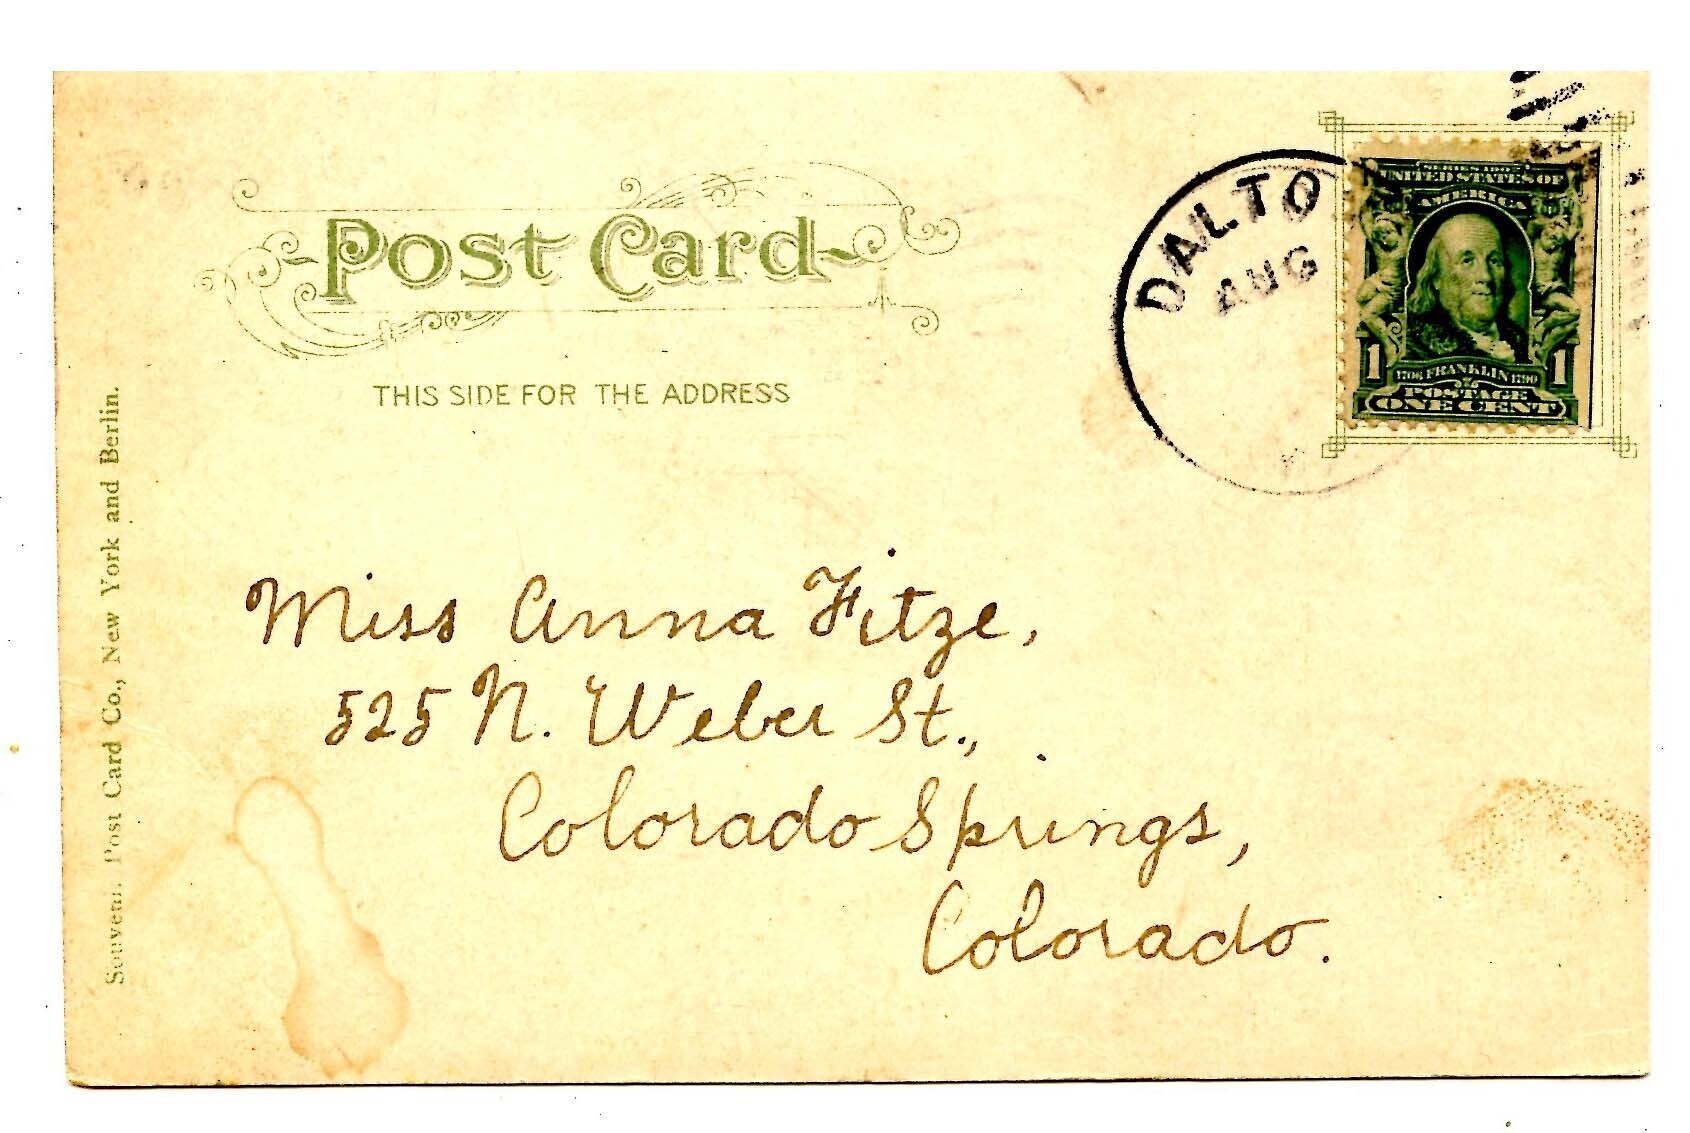 Post Card
THIS SIDE FOR THE ADDRESS
DALTO
AUG
UNITED STATES OF
AMERICA
1 1706 FRANKLIN 1790 1
POSTAGE
ONE CENT
Miss Anna Fitze,
525 N. Weber St.,
Colorado Springs,
Colorado.
Souvenir Post Card Co., New York and Berlin.